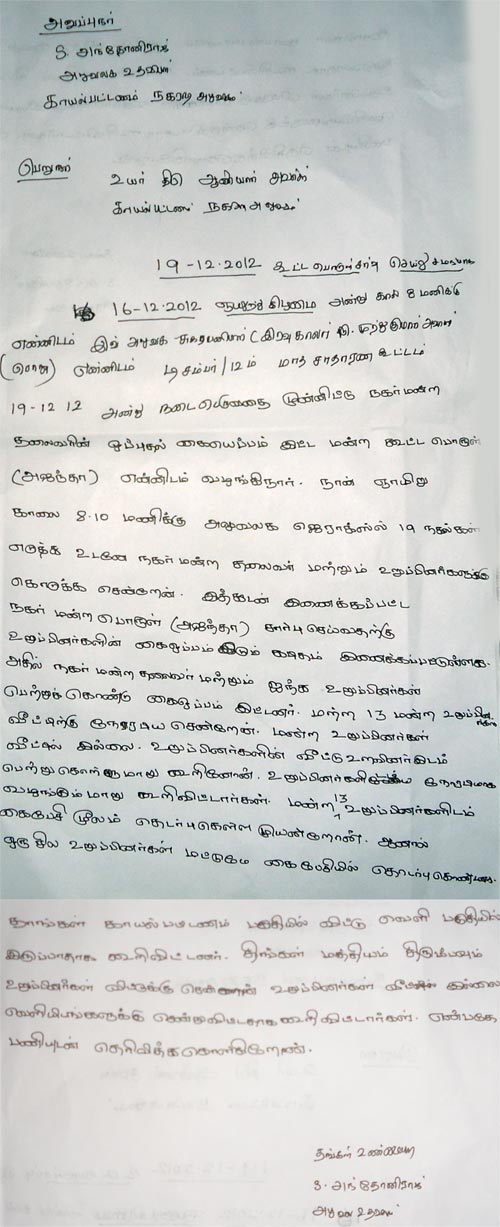 அனுப்புநர்
S. அந்தோனிராஜ்
அலுவலக உதவியாளர்
காயல்பட்டணம் நகராட்சி அலுவலகம்
பெறுநர்
உயர் திரு ஆணையாளர் அவர்கள்
காயல்பட்டணம் நகராட்சி அலுவலகம்
19-12-2012 கூட்ட பொருள் சார்பு செய்து சமந்தமாக
16-12-2012 ஞாயிற்று கிழமை அன்று காலை 8 மணிக்கு
என்னிடம் இவ் அலுவலக (இரவு காவலர்
என்னிடம் டிசம்பர்/12ம் மாத சாதாரண கூட்டம்
19-12 12 அன்று நடைபெறுவதை முன்னிட்டு நகர்மன்ற
தலைவரின் ஒப்புதல் கையொப்பம் இட்ட மன்ற கூட்ட பொருள்
(அஜந்தா) என்னிடம் வழங்கினார். நான் ஞாயிறு
காலை 8.10 மணிக்கு அலுவலக ஜெராக்ஸில் 19 நகல்கள்
எடுத்து உடனே நகர்மன்ற தலைவர் மற்றும் உறுப்பினர்களுக்கு
கொடுக்க சென்றேன். இத்துடன் இணைக்கப்பட்ட
நகர் மன்ற பொருள் (அஜந்தா) சார்பு செய்வதற்கு
உறுப்பினர்களின் கையொப்பம் இடும் கடிதம் இணைக்கப்பட்டுள்ளது.
அதில் நகர் மன்ற தலைவர் மற்றும் ஐந்து உறுப்பினர்கள்
பெற்றுக் கொண்டு கையொப்பம் இட்டனர். மற்ற 13 மன்ற உறுப்பினர்கள்
வீட்டிற்கு நேரடியாக சென்றேன். மன்ற உறுப்பினர்கள்
வீட்டில் இல்லை. உறுப்பினர்களின் வீட்டு உறவினர்இடம்
பெற்று கொள்ளுமாறு கூறினேன். உறுப்பினர்களிடமே நேரடியாக
வழங்குமாறு கூறிவிட்டார்கள். மன்ற 13 உறுப்பினர்களிடம்
கைபேசி மூலம் தொடர்புகொள்ள முயன்றேன். ஆனால்
ஒரு சில உறுப்பினர்கள் மட்டுமே கைபேசியில் தொடர்புகொண்டனர்.
தாங்கள் காயல்பட்டணம் பகுதியில் விட்டு வெளி பகுதியில்
இருப்பதாக கூறிவிட்டனர். திங்கள் மத்தியம் திரும்பவும்
உறுப்பினர்கள் வீட்டுக்கு சென்றேன் உறுப்பினர்கள் வீட்டில் இல்லை
வெளியிடங்களுக்கு சென்றுவிட்டதாக கூறிவிட்டார்கள். என்பதை
பணிவுடன் தெரிவித்துகொள்கிறேன்.
தங்கள் உண்மையுள்ள
S. அந்தோனிராஜ்
அலுவலக உதவியாளர்